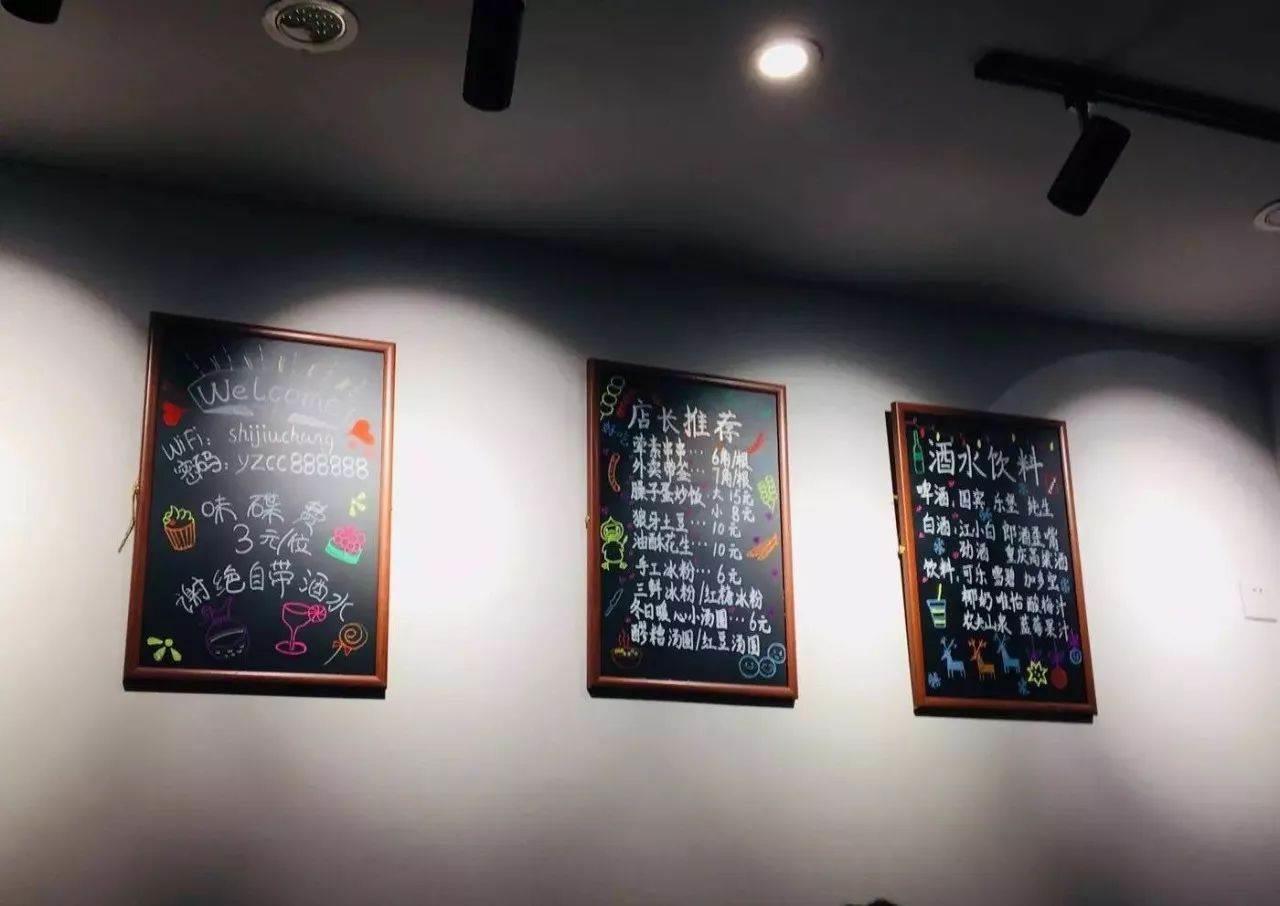 Welcome
WiFi: shijiuchang
密码: yzcc888888
味碟
3元/位
谢绝自带酒水
店长推荐
好吃
荤素串串… 6角/根
外卖带签… 7角/根
臊子蛋炒饭 大 15元
小 8元
狼牙土豆… 10元
油酥花生… 10元
手工冰粉… 6元
三鲜冰粉/红糖冰粉
冬日暖心小汤圆… 6元
醪糟汤圆/红豆汤圆
酒水饮料
啤酒: 国宾 乐堡 纯生
白酒: 江小白 郎酒歪嘴
劲酒 重庆高粱酒
饮料: 可乐 雪碧 加多宝
椰奶 唯怡 酸梅汁
农夫山泉 蓝莓果汁